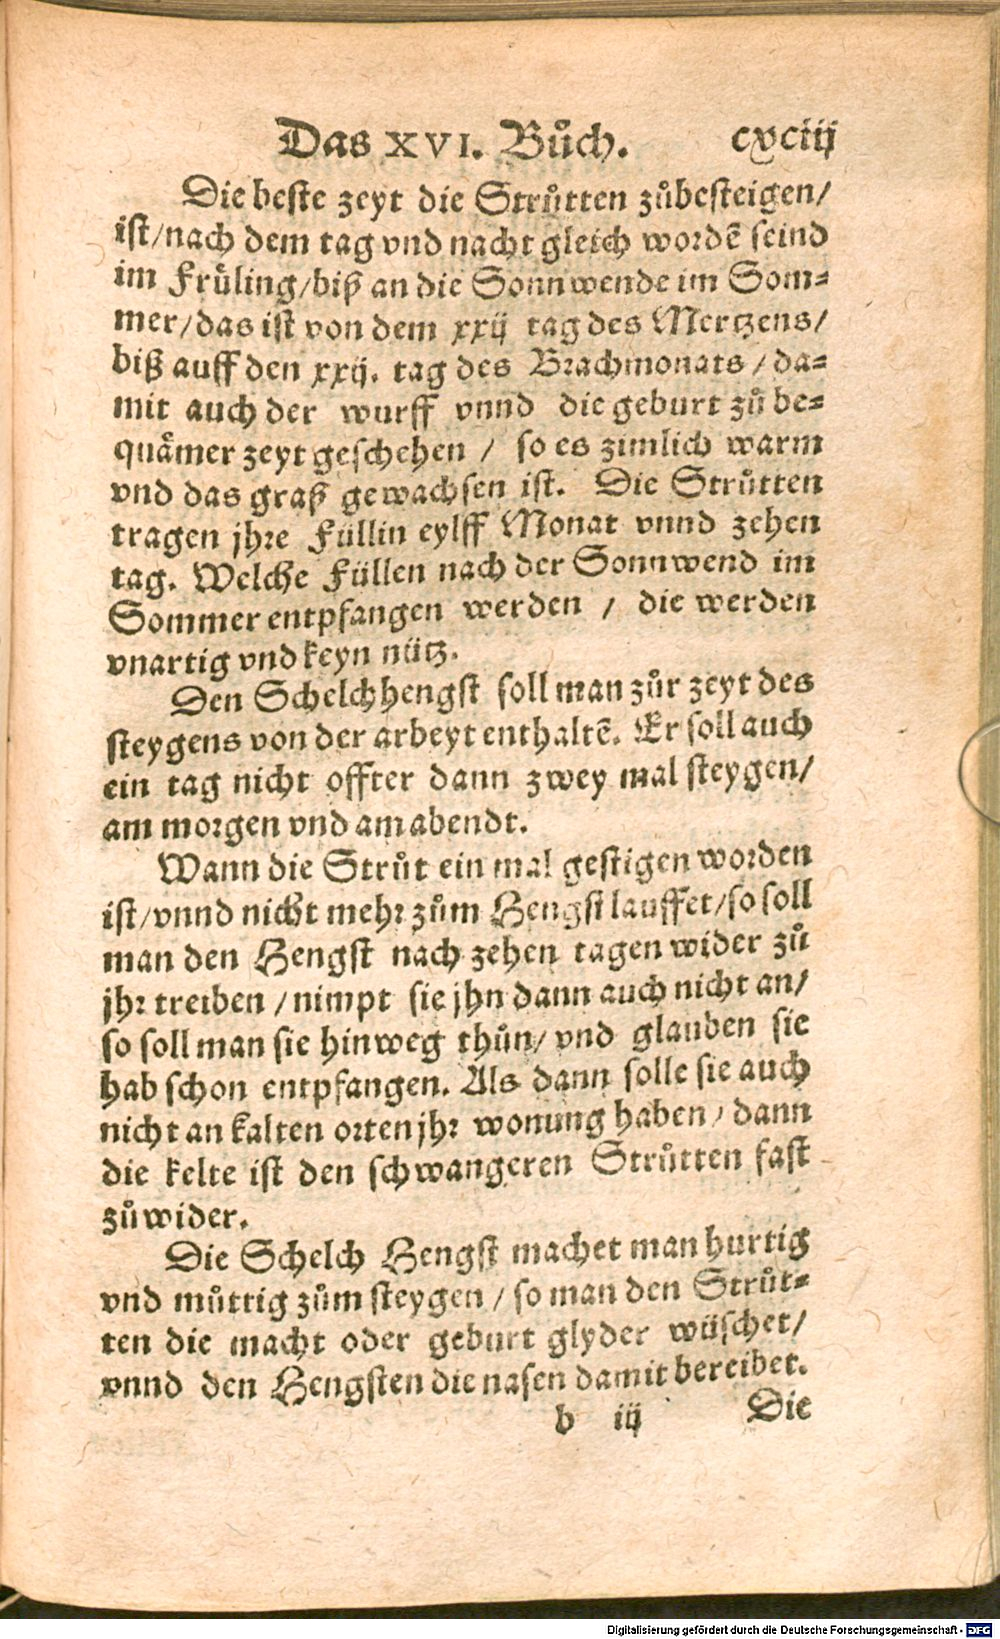 Das XVI. Bůch. cxciij
Die beste zeyt die Strůtten zůbesteigen/
ist/nach dem tag vnd nacht gleich wordẽ seind
im Früling/biß an die Sonnwende im Som⸗
mer/das ist von dem xxij tag des Mertzens/
biß auff den xxij. tag des Brachmonats/da⸗
mit auch der wurff vnnd die geburt zů be⸗
quämer zeyt geschehen/ so es zimlich warm
vnd das graß gewachsen ist. Die Strůtten
tragen jhre Füllin eylff Monat vnnd zehen
tag. Welche Füllen nach der Sonnwend im
Sommer entpfangen werden/ die werden
vnartig vnd keyn nütz.
Den Schelchhengst soll man zůr zeyt des
steygens von der arbeyt enthaltẽ. Er soll auch
ein tag nicht offter dann zwey mal steygen/
am morgen vnd am abendt.
Wann die Strůt ein mal gestigen worden
ist/vnnd nicht mehr zům Hengst lauffet/so soll
man den Hengst nach zehen tagen wider zů
jhr treiben/nimpt sie jhn dann auch nicht an/
so soll man sie hinweg thůn/vnd glauben sie
hab schon entpfangen. Als dann solle sie auch
nicht an kalten orten jhr wonung haben/dann
die kelte ist den schwangeren Strůtten fast
zůwider.
Die Schelch Hengst machet man hurtig
vnd můttig zům steygen/so man den Strůt⸗
ten die macht oder geburt glyder wüschet/
vnnd den Hengsten die nasen damit bereibet.
b iij Die
Digitalisierung gefördert durch die Deutsche Forschungsgemeinschaft - DFG